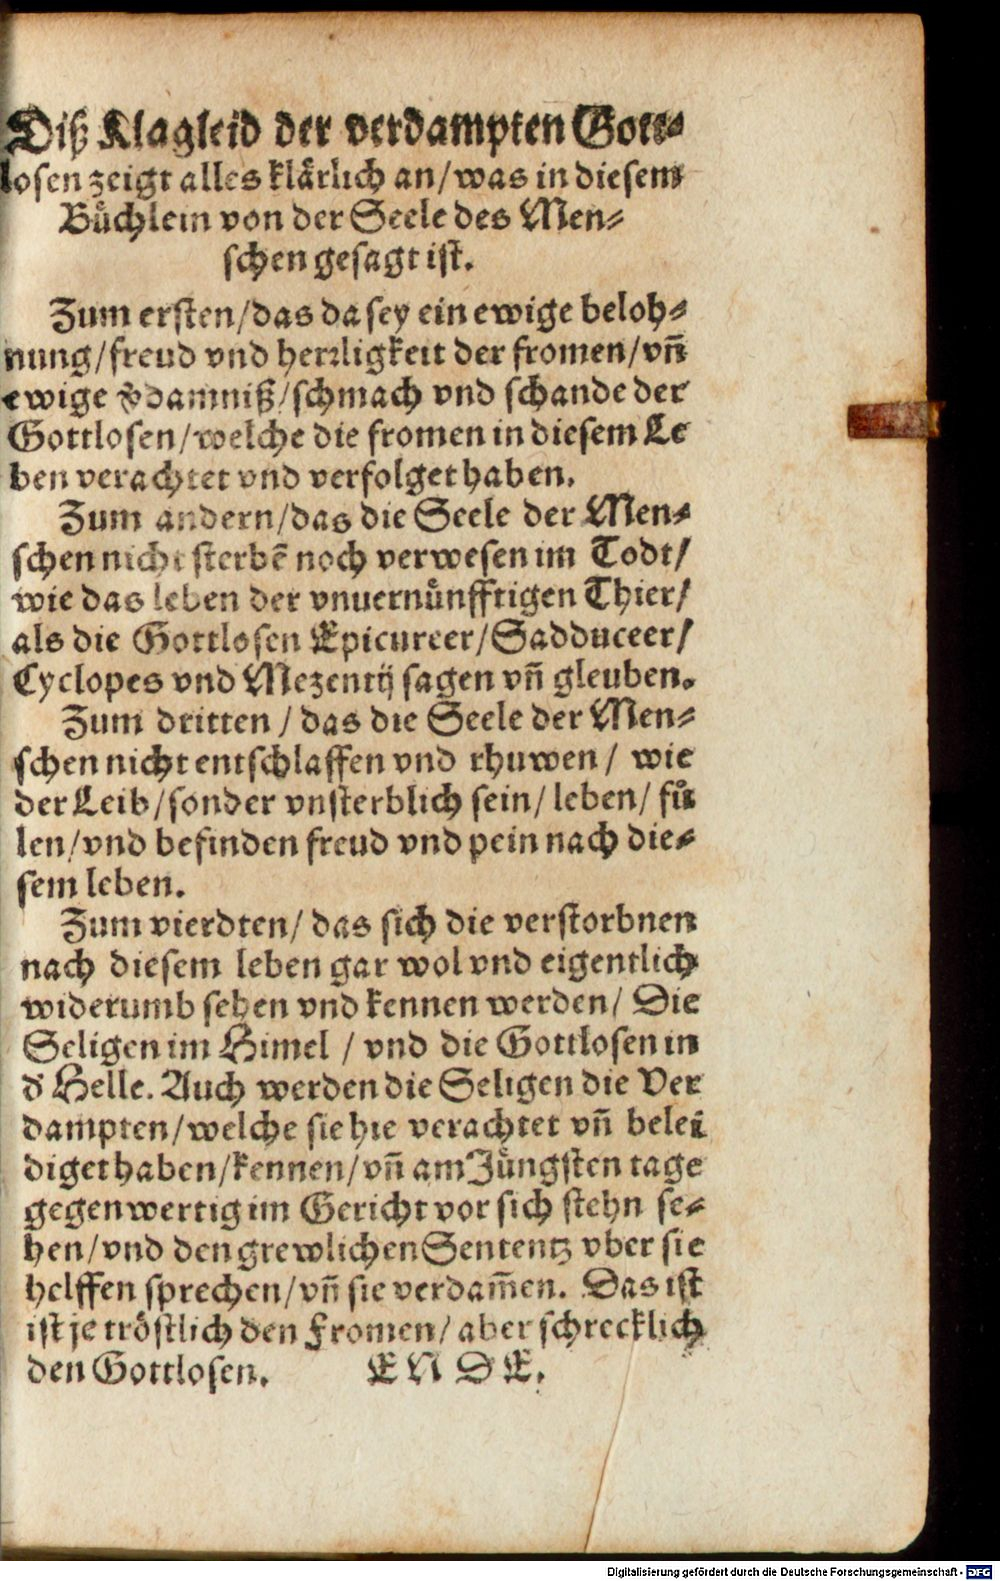 Diß Klagleid der verdampten Gott⸗
losen zeigt alles klärlich an/was in diesem
Büchlein von der Seele des Men⸗
schen gesagt ist.
Zum ersten/das da sey ein ewige beloh⸗
nung/freud vnd herrligkeit der fromen/vn̄
ewige v̄damniß/schmach vnd schande der
Gottlosen/welche die fromen in diesem Le
ben verachtet vnd verfolget haben.
Zum andern/das die Seele der Men⸗
schen nicht sterbē noch verwesen im Todt/
wie das leben der vnuernünfftigen Thier/
als die Gottlosen Epicureer/Sadduceer/
Cyclopes vnd Mezentij sagen vn̄ gleuben.
Zum dritten / das die Seele der Men⸗
schen nicht entschlaffen vnd rhuwen / wie
der Leib/sonder vnsterblich sein/ leben/ fü
len/vnd befinden freud vnd pein nach die⸗
sem leben.
Zum vierdten/ das sich die verstorbnen
nach diesem leben gar wol vnd eigentlich
widerumb sehen vnd kennen werden/ Die
Seligen im Himel / vnd die Gottlosen in
d' Helle. Auch werden die Seligen die Ver
dampten/welche sie hie verachtet vn̄ belei
diget haben/kennen/vn̄ am Jüngsten tage
gegenwertig im Gericht vor sich stehn se⸗
hen/vnd den grewlichen Sententz vber sie
helffen sprechen/vn̄ sie verdam̄en. Das ist
ist je tröstlich den Fromen/ aber schrecklich
den Gottlosen. E N D E.
Digitalisierung gefördert durch die Deutsche Forschungsgemeinschaft - DFG